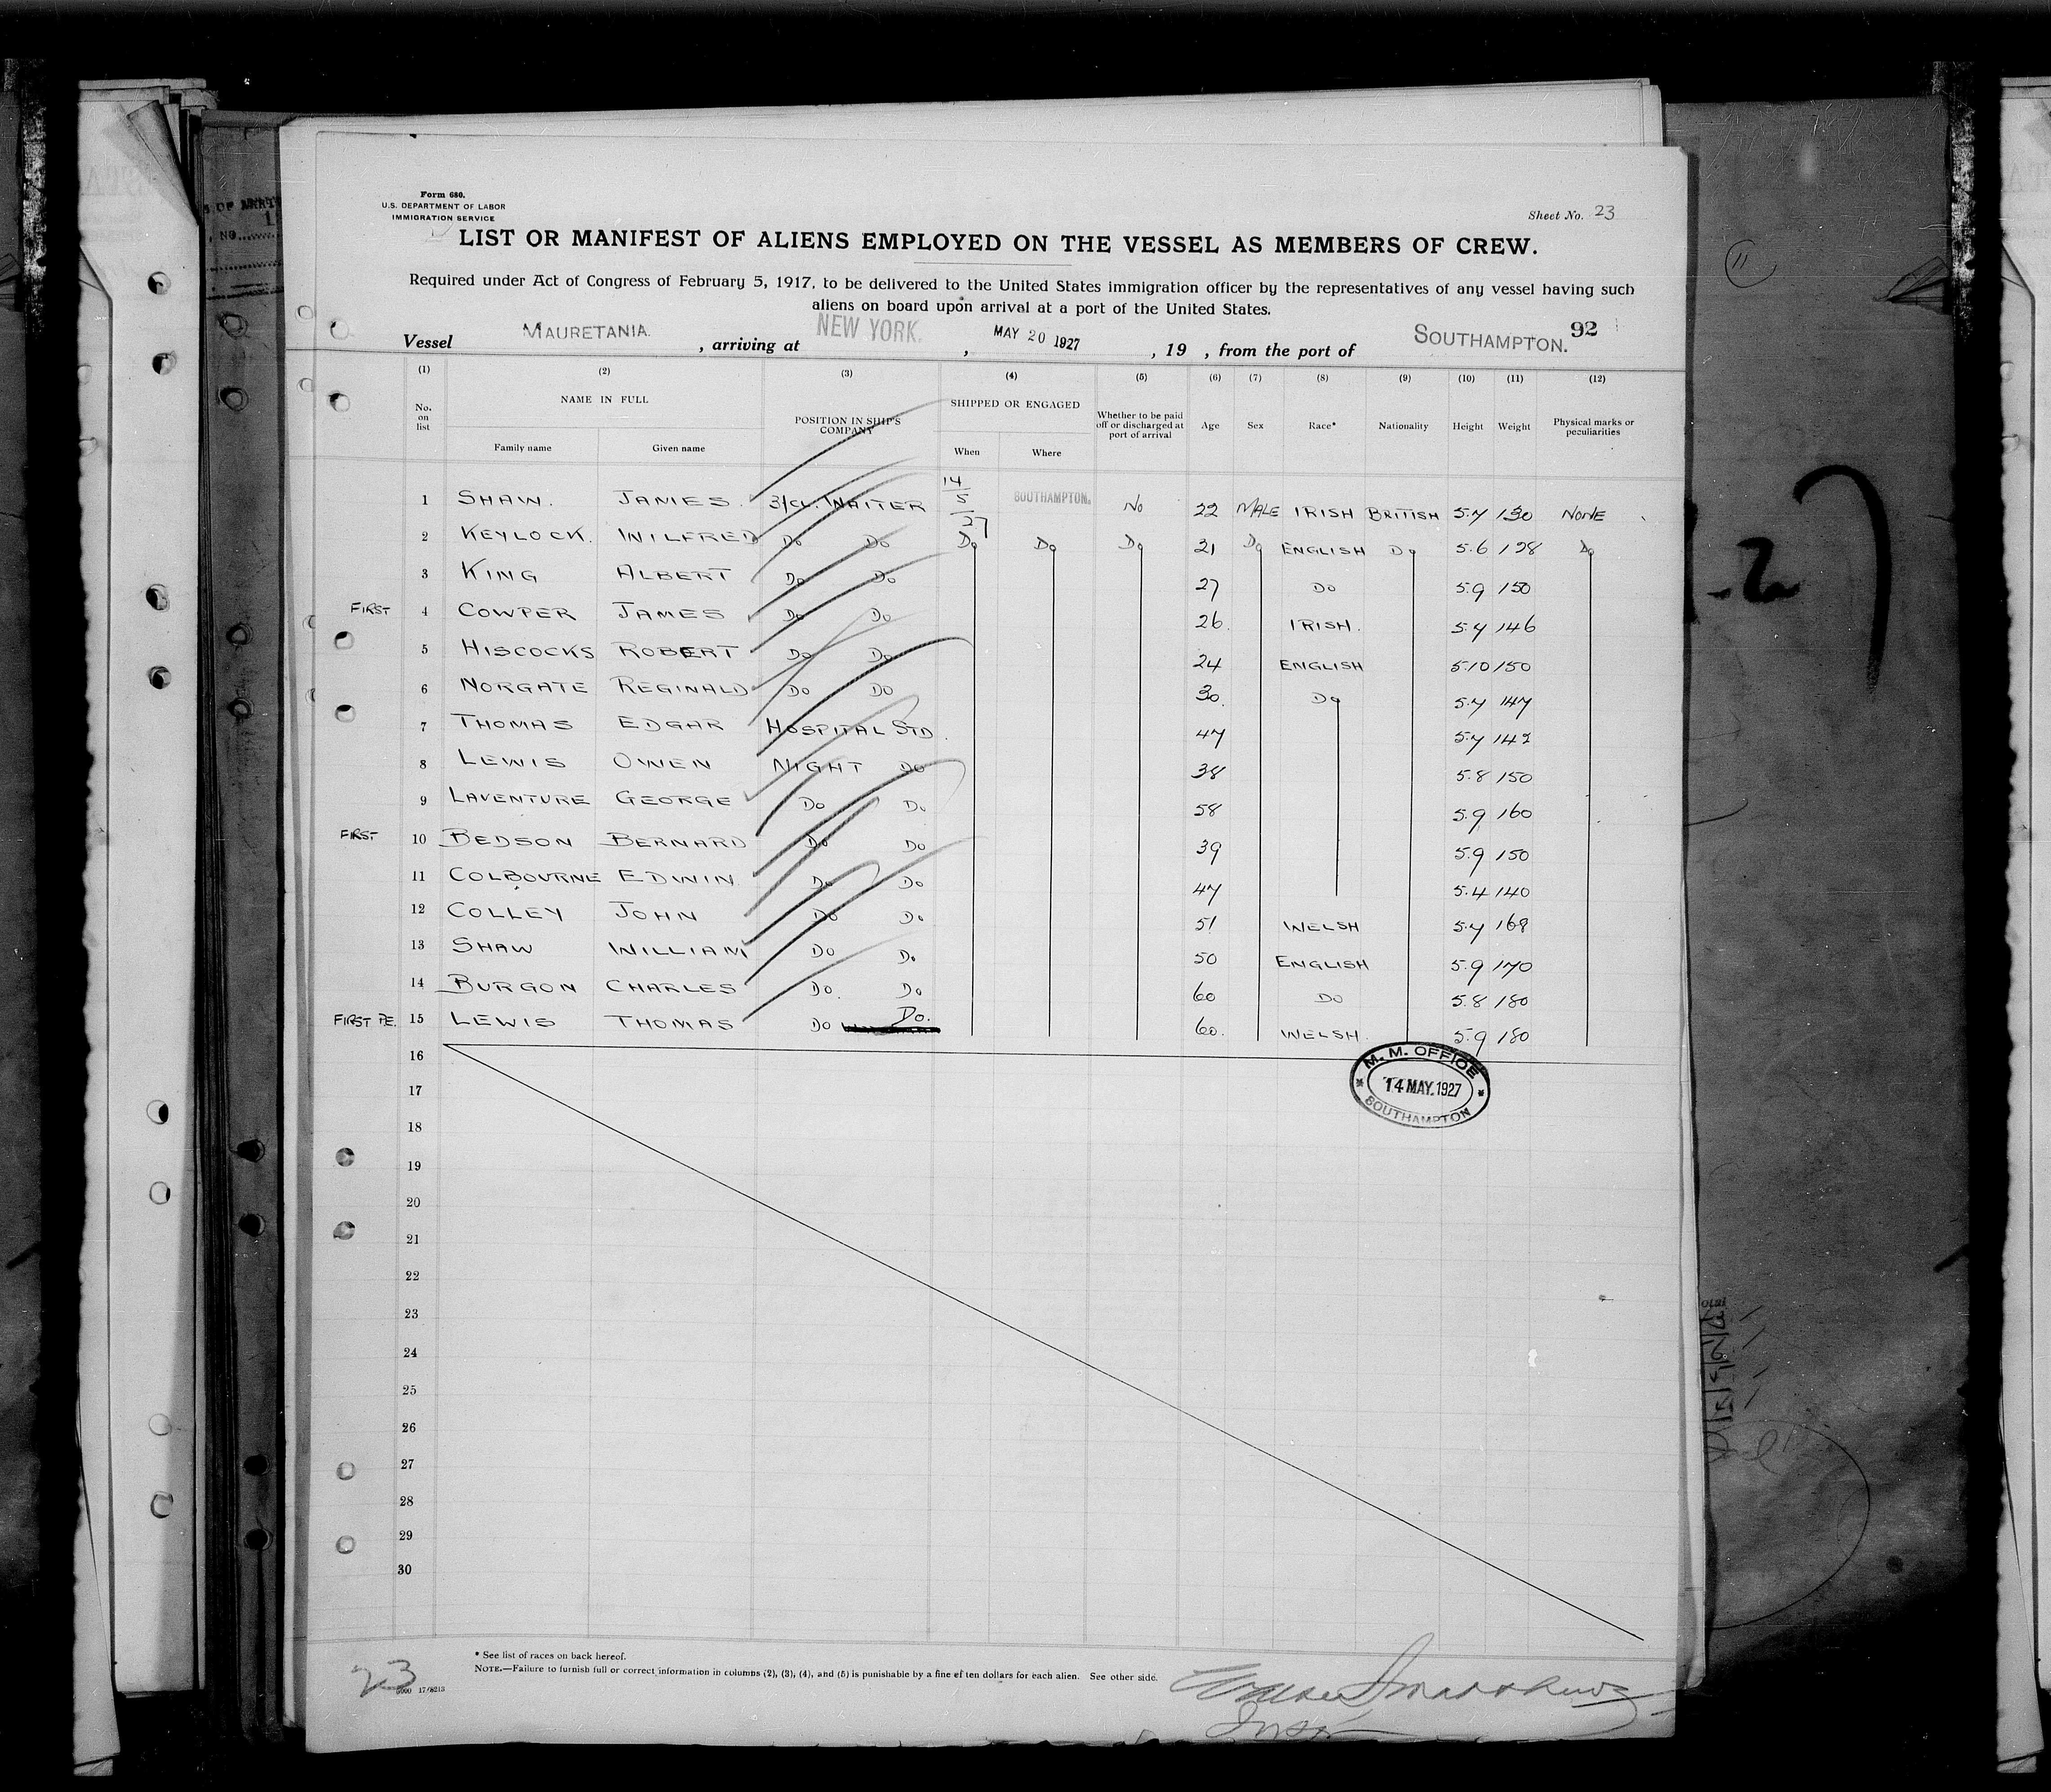 Form 680.
U.S. DEPARTMENT OF LABOR
IMMIGRATION SERVICE
Sheet No. 23
LIST OR MANIFEST OF ALIENS EMPLOYED ON THE VESSEL AS MEMBERS OF CREW.
Required under Act of Congress of February 5, 1917, to be delivered to the United States immigration officer by the representatives of any vessel having such
aliens on board upon arrival at a port of the United States.
92
Vessel MAURETANIA. , arriving at NEW YORK. , MAY 20 1927 , 19 , from the port of SOUTHAMPTON.
(1) (2) (3) (4) (5) (6) (7) (8) (9) (10) (11) (12)
No. on list NAME IN FULL Family name Given name POSITION IN SHIP'S COMPANY SHIPPED OR ENGAGED When Where Whether to be paid off or discharged at port of arrival Age Sex Race* Nationality Height Weight Physical marks or peculiarities
1 SHAW. JAMES. 3/CL. WAITER 14/5/27 SOUTHAMPTON. NO 22 MALE IRISH BRITISH 5.7 130 NONE
2 KEYLOCK. WILFRED DO DO DO DO DO 21 DO ENGLISH DO 5.6 128 DO
3 KING ALBERT DO DO 27 DO 5.9 150
FIRST 4 COWPER JAMES DO DO 26. IRISH. 5.7 146
5 HISCOCKS ROBERT DO DO 24 ENGLISH 5.10 150
6 NORGATE REGINALD DO DO 30. DO 5.7 147
7 THOMAS EDGAR HOSPITAL STD. 47 5.7 142
8 LEWIS OWEN NIGHT DO 38 5.8 150
9 LAVENTURE GEORGE DO DO 58 5.9 160
FIRST 10 BEDSON BERNARD DO DO 39 5.9 150
11 COLBOURNE EDWIN. DO DO 47 5.4 140
12 COLLEY JOHN DO DO 51 WELSH 5.7 168
13 SHAW WILLIAM DO DO 50 ENGLISH 5.9 170
14 BURGON CHARLES DO. DO 60 DO 5.8 180
FIRST PE. 15 LEWIS THOMAS DO DO. 60. WELSH. 5.9 180
16
M. M. OFFICE
14 MAY. 1927
SOUTHAMPTON
17
18
19
20
21
22
23
24
25
26
27
28
29
30
* See list of races on back hereof.
NOTE.—Failure to furnish full or correct information in columns (2), (3), (4), and (5) is punishable by a fine of ten dollars for each alien. See other side.
23